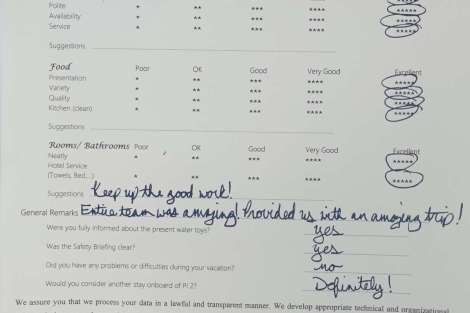 Polite * ** *** **** *****
Availability * ** *** **** *****
Service * ** *** **** *****
Suggestions
Food Poor OK Good Very Good Excellent
Presentation * ** *** **** *****
Variety * ** *** **** *****
Quality * ** *** **** *****
Kitchen (clean) * ** *** **** *****
Suggestions
Rooms/ Bathrooms Poor OK Good Very Good Excellent
Neatly * ** *** **** *****
Hotel Service
(Towels, Bed...) * ** *** **** *****
Suggestions Keep up the good work!
General Remarks Entire team was amazing! Provided us with an amazing trip!
Were you fully informed about the present water toys? yes
Was the Safety Briefing clear? yes
Did you have any problems or difficulties during your vacation? no
Would you consider another stay onboard of Pi 2? Definitely!
We assure you that we process your data in a lawful and transparent manner. We develop appropriate technical and organizational